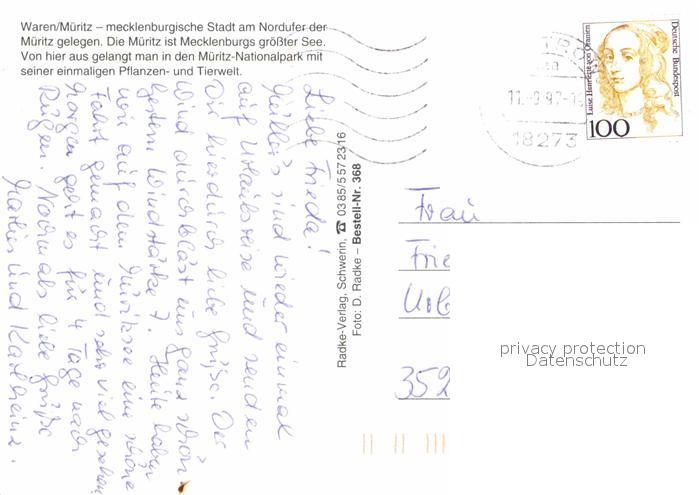 Waren/Müritz – mecklenburgische Stadt am Nordufer der
Müritz gelegen. Die Müritz ist Mecklenburgs größter See.
Von hier aus gelangt man in den Müritz-Nationalpark mit
seiner einmaligen Pflanzen- und Tierwelt.
Liebe Frieda!
Müller's sind wieder einmal
auf Urlaubsreise und senden
Dir hierdurch liebe Grüße. Der
Wind durchbläst uns ganz schön
gestern Windstärke 7. Heute haben
wir auf dem Müritzsee eine schöne
Fahrt gemacht und sehr viel gesehen
Morgen geht es für 4 Tage nach
Rügen. Nochmals liebe Grüße
und Katharina.
Radke-Verlag, Schwerin, ☎ 0385/5572316
Foto: D. Radke – Bestell-Nr. 368
18273
Luise Henriette von Oranien
Deutsche Bundespost
100
Frau
Frie
352
privacy protection
Datenschutz